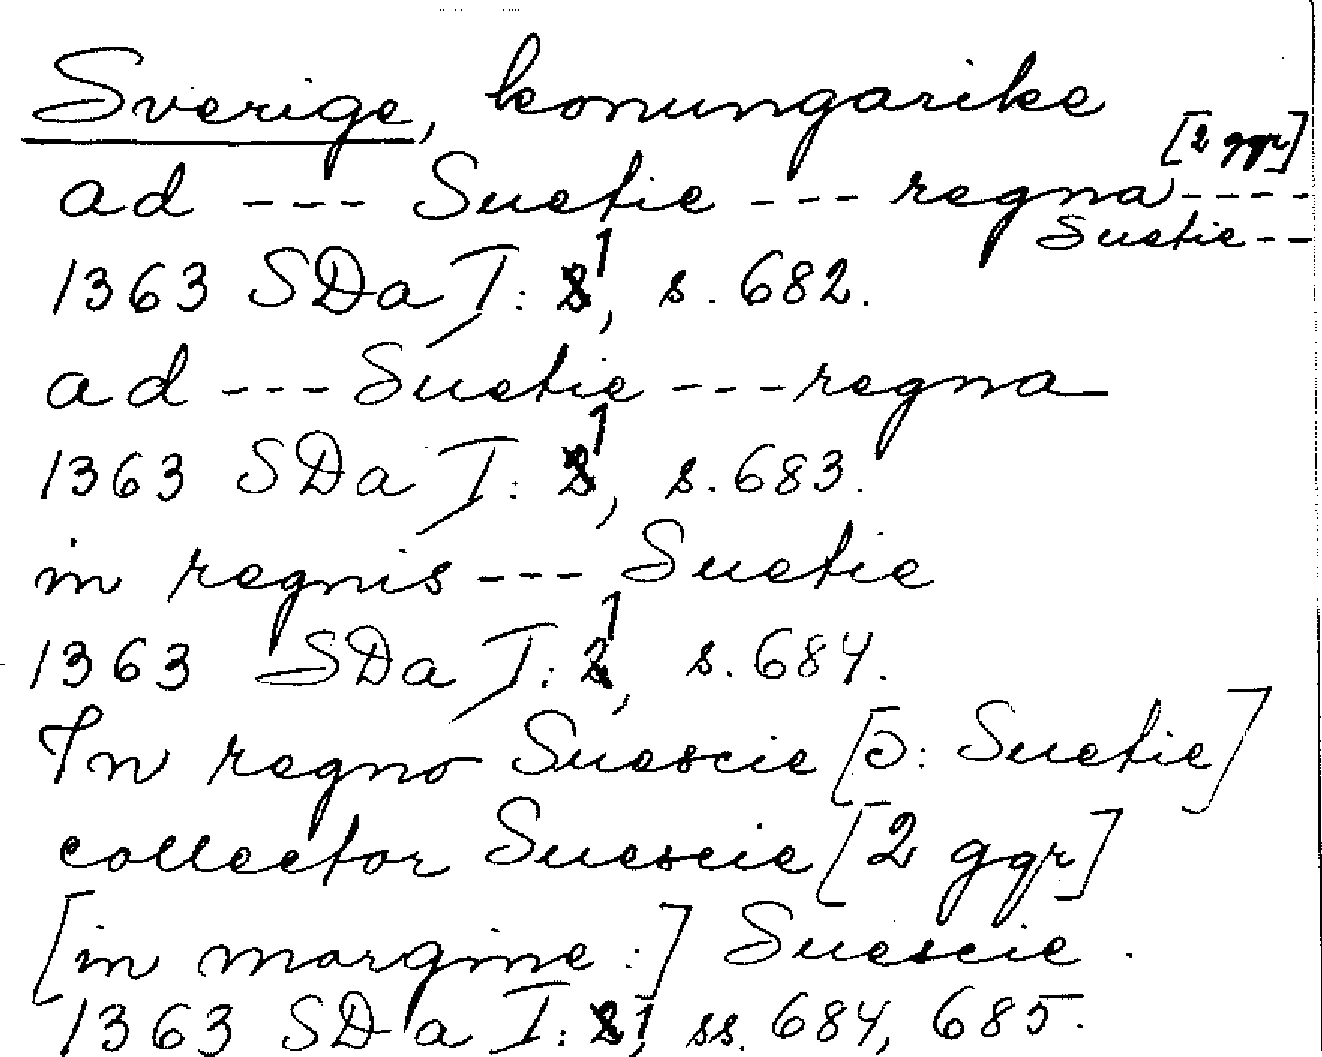 Sverige, konungarike
ad --- Suetie --- regna [2 ggr] ----
Suetie --
1363 SDa I: 1, s. 682.
ad --- Suetie --- regna
1363 SDa I: 1, s. 683.
in regnis --- Suetie
1363 SDa I: 1, s. 684.
In regno Suescie [ɔ: Suetie]
collector Suescie [2 ggr]
[in margine:] Suescie.
1363 SDa I: 1, ss. 684, 685.